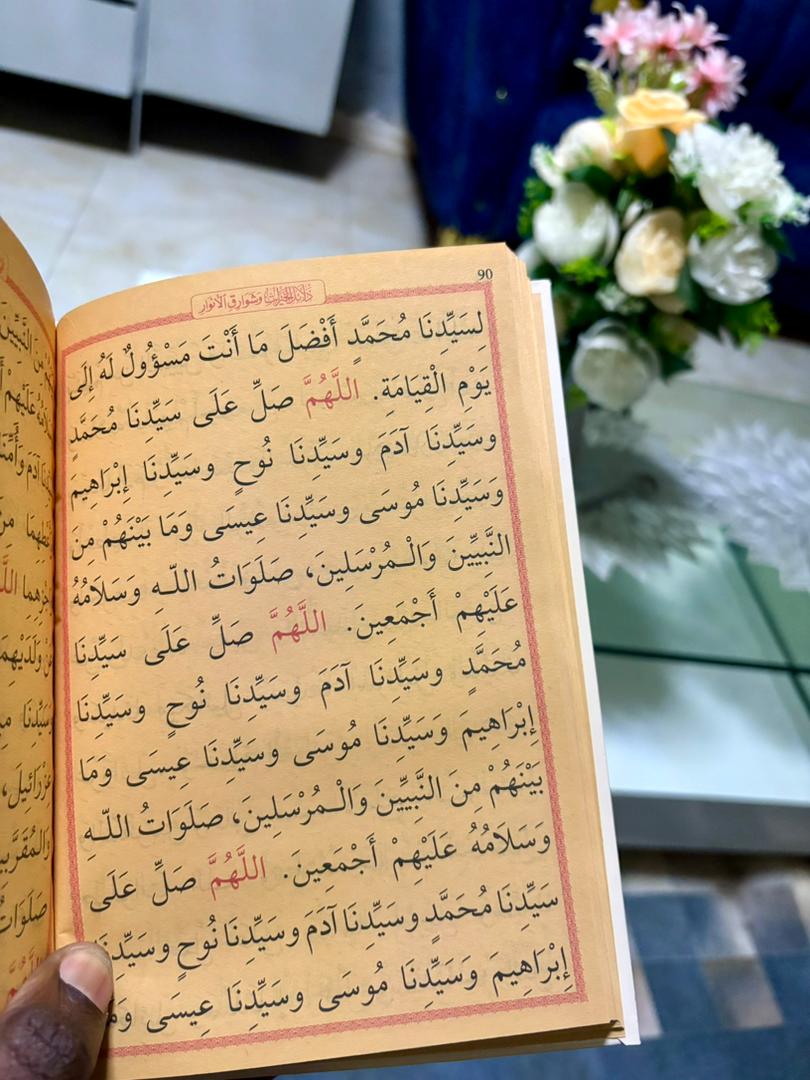 90
دلائل الخيرات وشوارق الأنوار
لِسَيِّدِنَا مُحَمَّدٍ أَفْضَلَ مَا أَنْتَ مَسْؤُولٌ لَهُ إِلَى
يَوْمِ الْقِيَامَةِ. اللَّهُمَّ صَلِّ عَلَى سَيِّدِنَا مُحَمَّدٍ
وسَيِّدِنَا آدَمَ وسَيِّدِنَا نُوحٍ وسَيِّدِنَا إِبْرَاهِيمَ
وَسَيِّدِنَا مُوسَى وسَيِّدِنَا عِيسَى وَمَا بَيْنَهُمْ مِنَ
النَّبِيِّينَ وَالْـمُرْسَلِينَ، صَلَوَاتُ اللّـهِ وَسَلَامُهُ
عَلَيْهِمْ أَجْمَعِينَ. اللَّهُمَّ صَلِّ عَلَى سَيِّدِنَا
مُحَمَّدٍ وسَيِّدِنَا آدَمَ وسَيِّدِنَا نُوحٍ وسَيِّدِنَا
إِبْرَاهِيمَ وَسَيِّدِنَا مُوسَى وسَيِّدِنَا عِيسَى وَمَا
بَيْنَهُمْ مِنَ النَّبِيِّينَ وَالْـمُرْسَلِينَ، صَلَوَاتُ اللّـهِ
وَسَلَامُهُ عَلَيْهِمْ أَجْمَعِينَ. اللَّهُمَّ صَلِّ عَلَى
سَيِّدِنَا مُحَمَّدٍ وسَيِّدِنَا آدَمَ وسَيِّدِنَا نُوحٍ وسَيِّدِنَا
إِبْرَاهِيمَ وَسَيِّدِنَا مُوسَى وسَيِّدِنَا عِيسَى